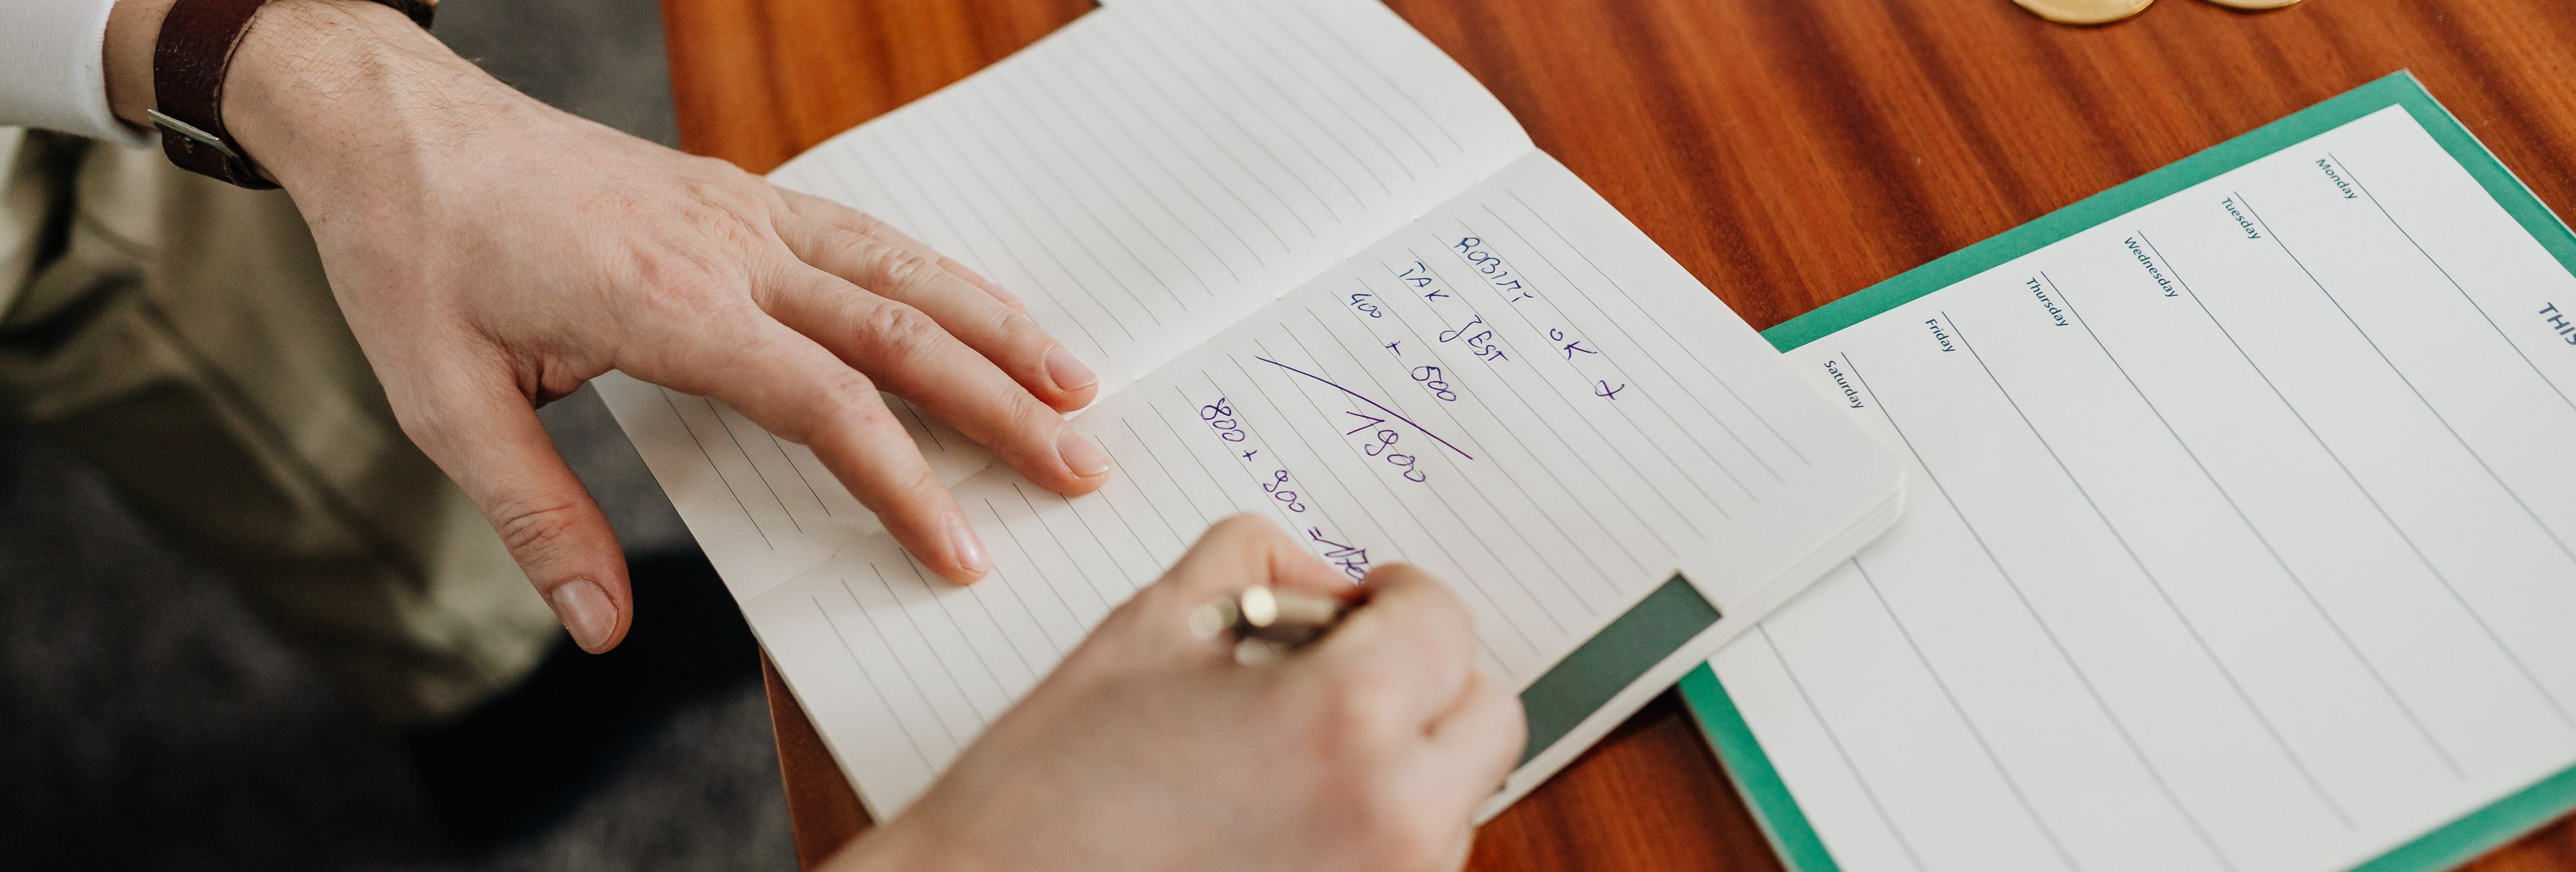 ROBIMY OK
TAK JEST
400 + 500
1900
800 + 900 = 170
Monday
Tuesday
Wednesday
Thursday
Friday
Saturday
THIS